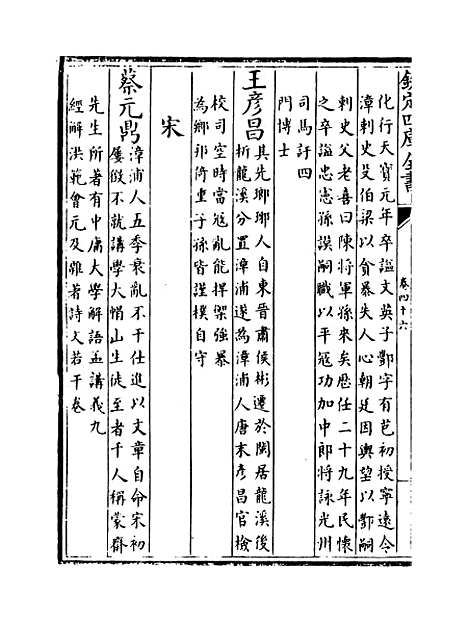 欽定四庫全書
卷四十六
化行天寳元年卒謚文英子酆字有芑初授寧逺令
漳刺史殳伯梁以貪暴失人心朝廷因輿望以酆嗣
刺史父老喜曰陳將軍孫來矣歴任二十九年民懐
之卒謚忠憲孫謨嗣職以平冦功加中郎將詠光州
司馬訏四
門博士
王彦昌其先瑯琊人自東晉肅侯彬遷於閩居龍溪後
析龍溪分置漳浦遂為漳浦人唐末彦昌官檢
校司空時當冦亂能捍禦强暴
為鄉邦倚重子孫皆謹樸自守
宋
蔡元鼎漳浦人五季衰亂不干仕進以文章自命宋初
屢徴不就講學大帽山生徒至者千人稱蒙齋
先生所著有中庸大學解語孟講義九
經解洪範會元及雜著詩文若干卷